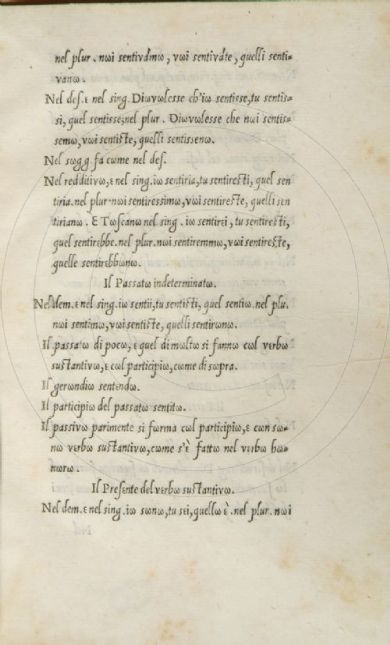 nel plur. nωi sentivamω, vωi sentivate, quelli senti-
vanω.
Nel des. ε nel sing. Diωvωlesse ch'iω sentisse, tu sentis-
si, quel sentisse, nel plur. Diωvωlesse che nωi sentis-
semω, vωi sentiste, quelli sentissenω.
Nel sωgg. fa cωme nel des.
Nel redditivω, ε nel sing. iω sentiria, tu sentiresti, quel sen
tiria. nel plur. nωi sentiressimω, vωi sentireste, quelli sen
tirianω. E Tωscanω nel sing. iω sentirei, tu sentiresti,
quel sentirebbe. nel plur. nωi sentiremmω, vωi sentireste,
quelle sentirebbωnω.
Il Passatω indeterminatω.
Nel dem. ε nel sing. iω sentii, tu sentisti, quel sentiω. nel plu.
nωi sentimω, vωi sentiste, quelli sentirωnω.
Il passatω di pωcω, ε quel di mωltω si fannω cωl verbω
sustantivω, ε cωl participiω, cωme di sωpra.
Il gerωndiω sentendω.
Il participiω del passatω sentitω.
Il passivω parimente si fωrma cωl participiω, ε cωn suω-
nω verbω sustantivω, cωme s'è fattω nel verbω hω-
nωrω.
Il Presente del verbω sustantivω.
Nel dem. ε nel sing. iω sωnω, tu sei, quellω è. nel plur. nωi